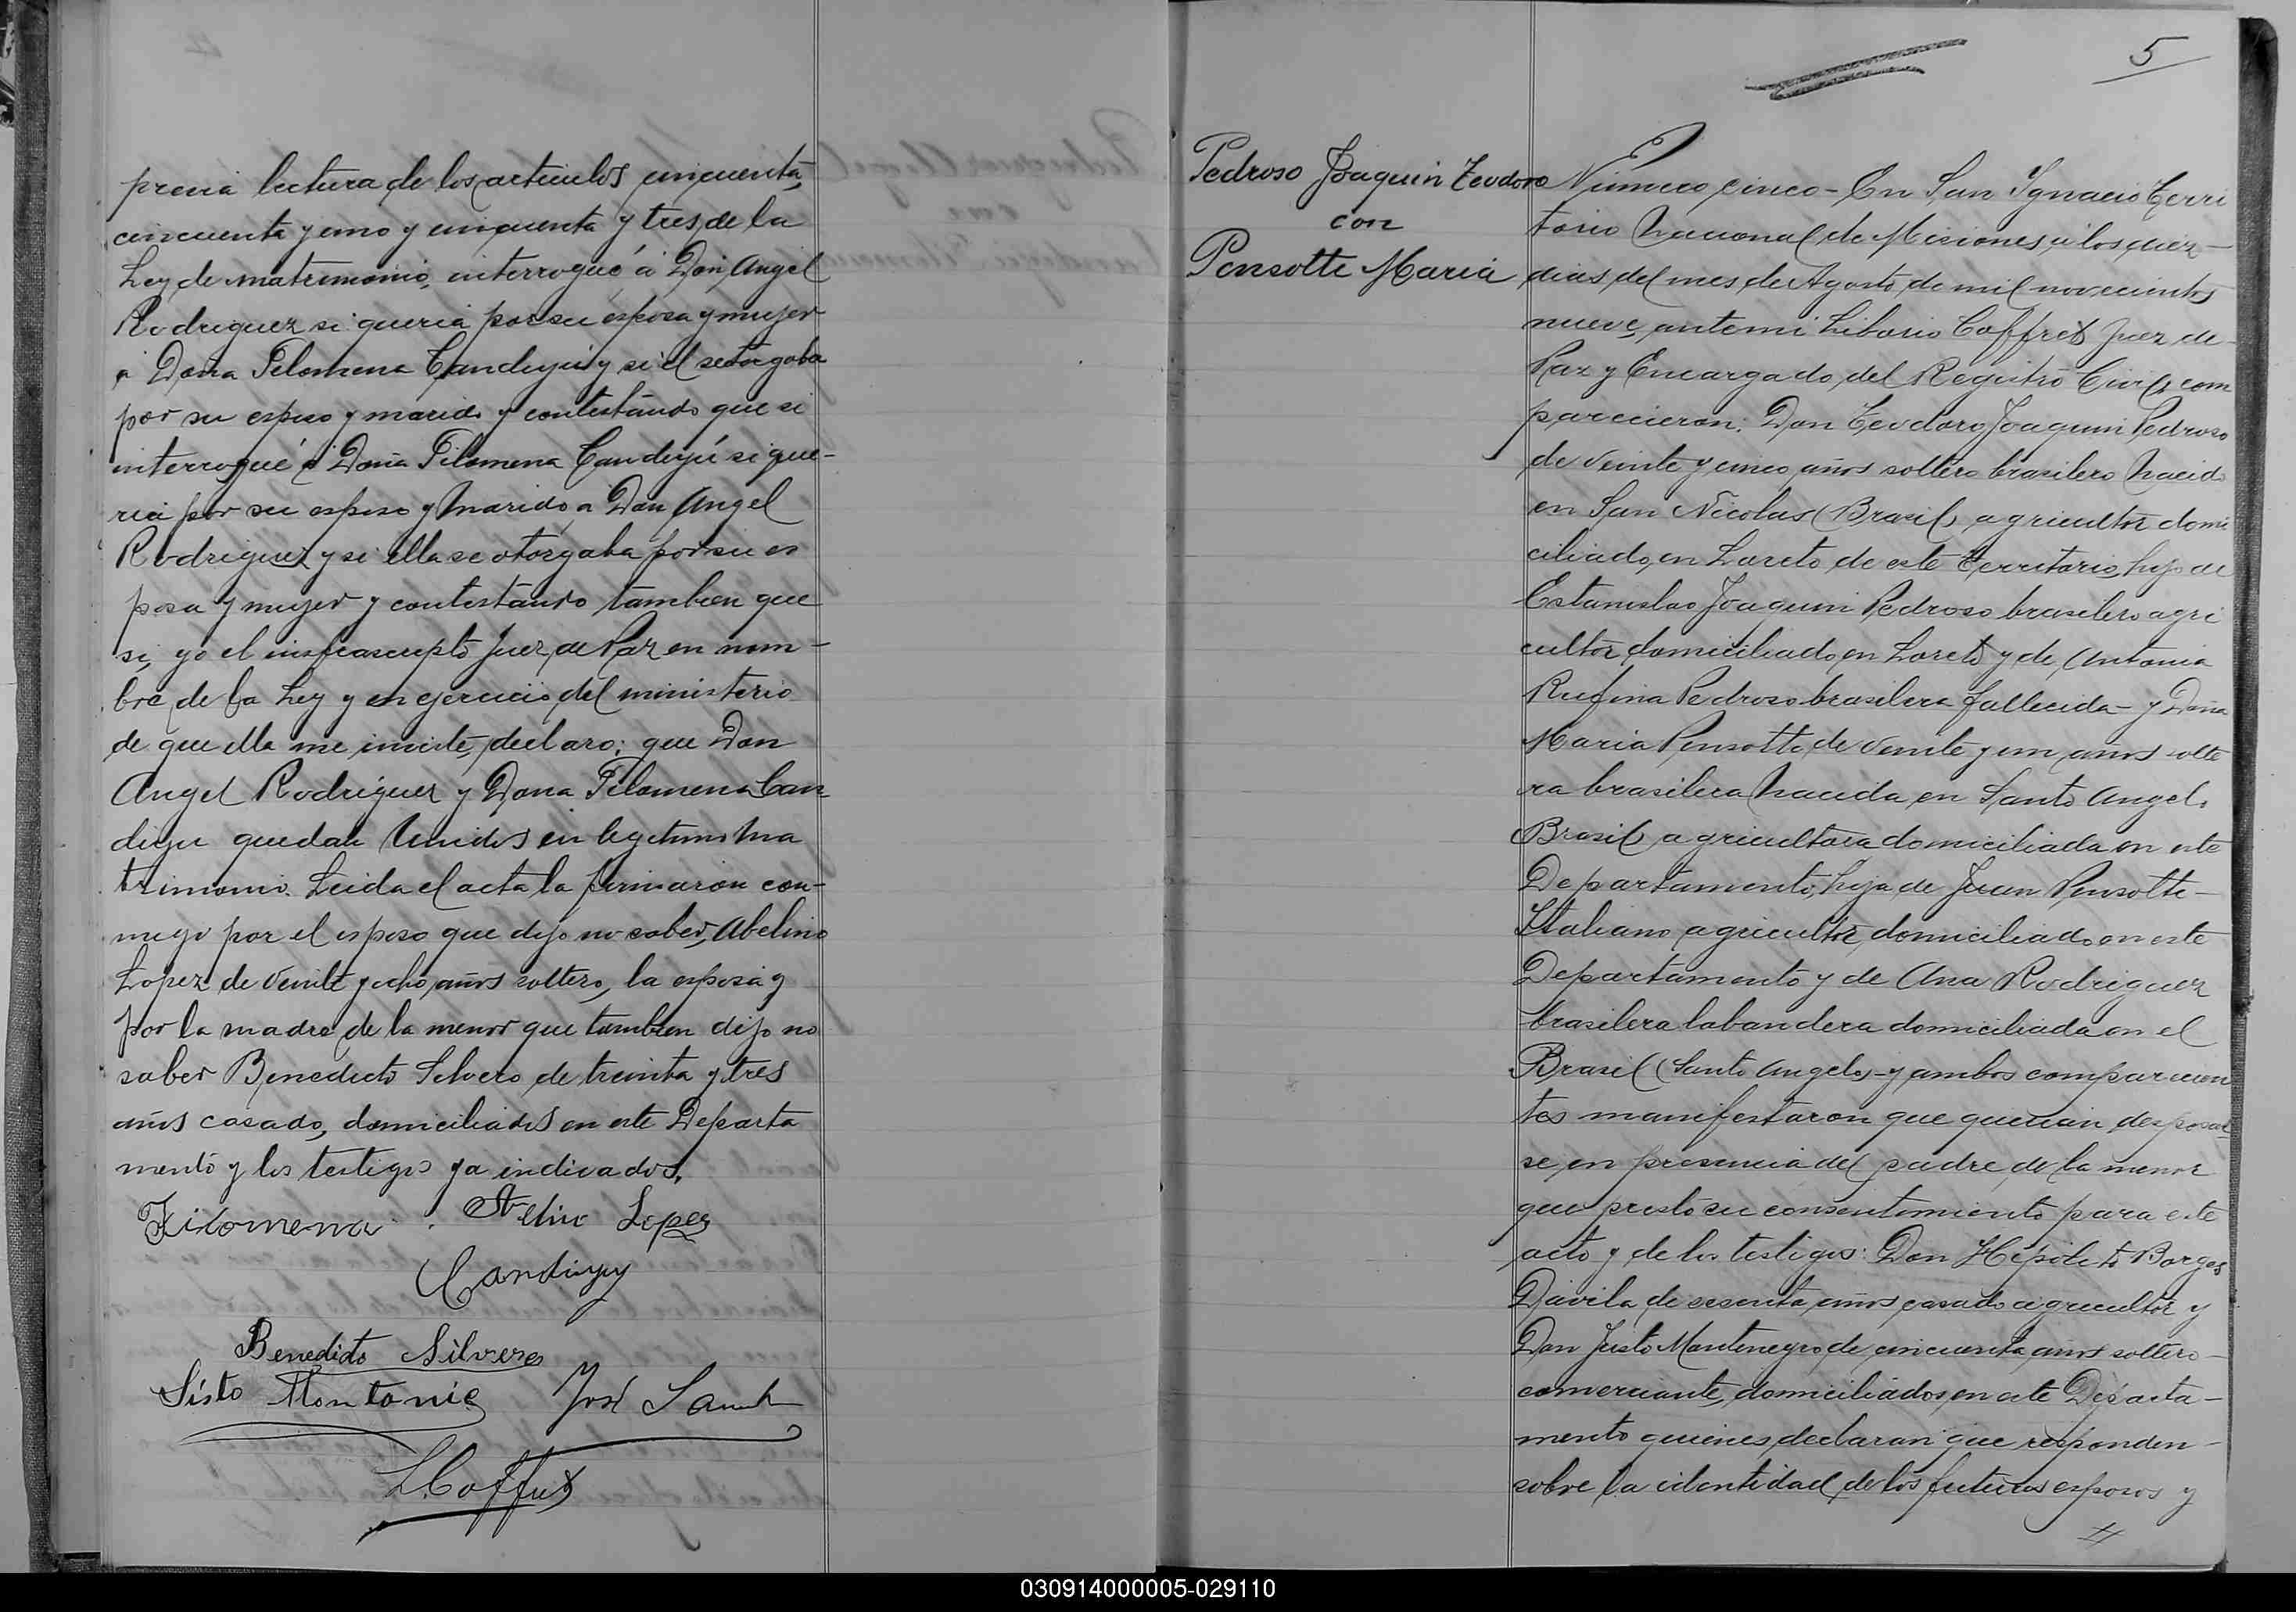 previa lectura de los articulos cincuenta,
cincuenta y uno y cincuenta y tres de la
Ley de matrimonio, interrogué á Don Angel
Rodriguez si queria por su esposa y mujer
á Doña Filomena Candiyú y si él se otorgaba
por su esposo y marido y contestando que si
interrogué á Doña Filomena Candiyú si que-
ria por su esposo y marido á Don Angel
Rodriguez y si ella se otorgaba por su es
posa y mujer y contestando tambien que
si, yo el infrascripto Juez de Paz en nom-
bre de la Ley y en ejercicio del ministerio
de que ella me inviste, declaro: que Don
Angel Rodriguez y Doña Filomena Can
diyu quedan Unidos en legitimo Ma
trimonio. Leida el acta la firmaron con-
migo por el esposo que dijo no saber, Abelino
Lopez de veinte y ocho años soltero, la esposa y
por la madre de la menor que tambien dijo no
saber Benedicto Silvero de treinta y tres
años casado, domiciliados en este Departa
mento y los testigos ya indicados.
Filomena Lopez
Candiyuy
Benedicto Silvero
Sisto José
L. Coffret
5
Pedroso Joaquin Teodoro
con
Pensotte Maria
Número cinco - En San Ygnacio Terri
torio Nacional de Misiones, á los diez
dias del mes de Agosto de mil novecientos
nueve, ante mi Liborio Coffret Juez de
Paz y Encargado del Registro Civil, com
parecieron: Don Teodoro Joaquin Pedroso
de veinte y cinco años soltero brasilero Nacido
en San Nicolas (Brasil) agricultor domi
ciliado en Loreto de este Territorio, hijo de
Estanislao Joaquin Pedroso brasilero agri
cultor domiciliado en Loreto y de Antonia
Rufina Pedroso brasilera fallecida - y Doña
Maria Pensotte de veinte y un años solte
ra brasilera Nacida en Santo Angel,
Brasil, agricultora domiciliada en este
Departamento, hija de Juan Pensotte -
Ytaliano agricultor domiciliado en este
Departamento y de Ana Rodriguez
brasilera labandera domiciliada en el
Brasil (Santo Angelo) - y ambos comparecien
tes manifestaron que querian desposar-
se en presencia del padre de la menor
que prestó su consentimiento para este
acto y de los testigos: Don Hipólito Borges
Davila de sesenta años casado agricultor y
Don Justo Montenegro de cincuenta años soltero -
comerciante, domiciliados en este Departa-
mento quienes declaran que responden -
sobre la identidad de los futuros esposos y
//
030914000005-029110